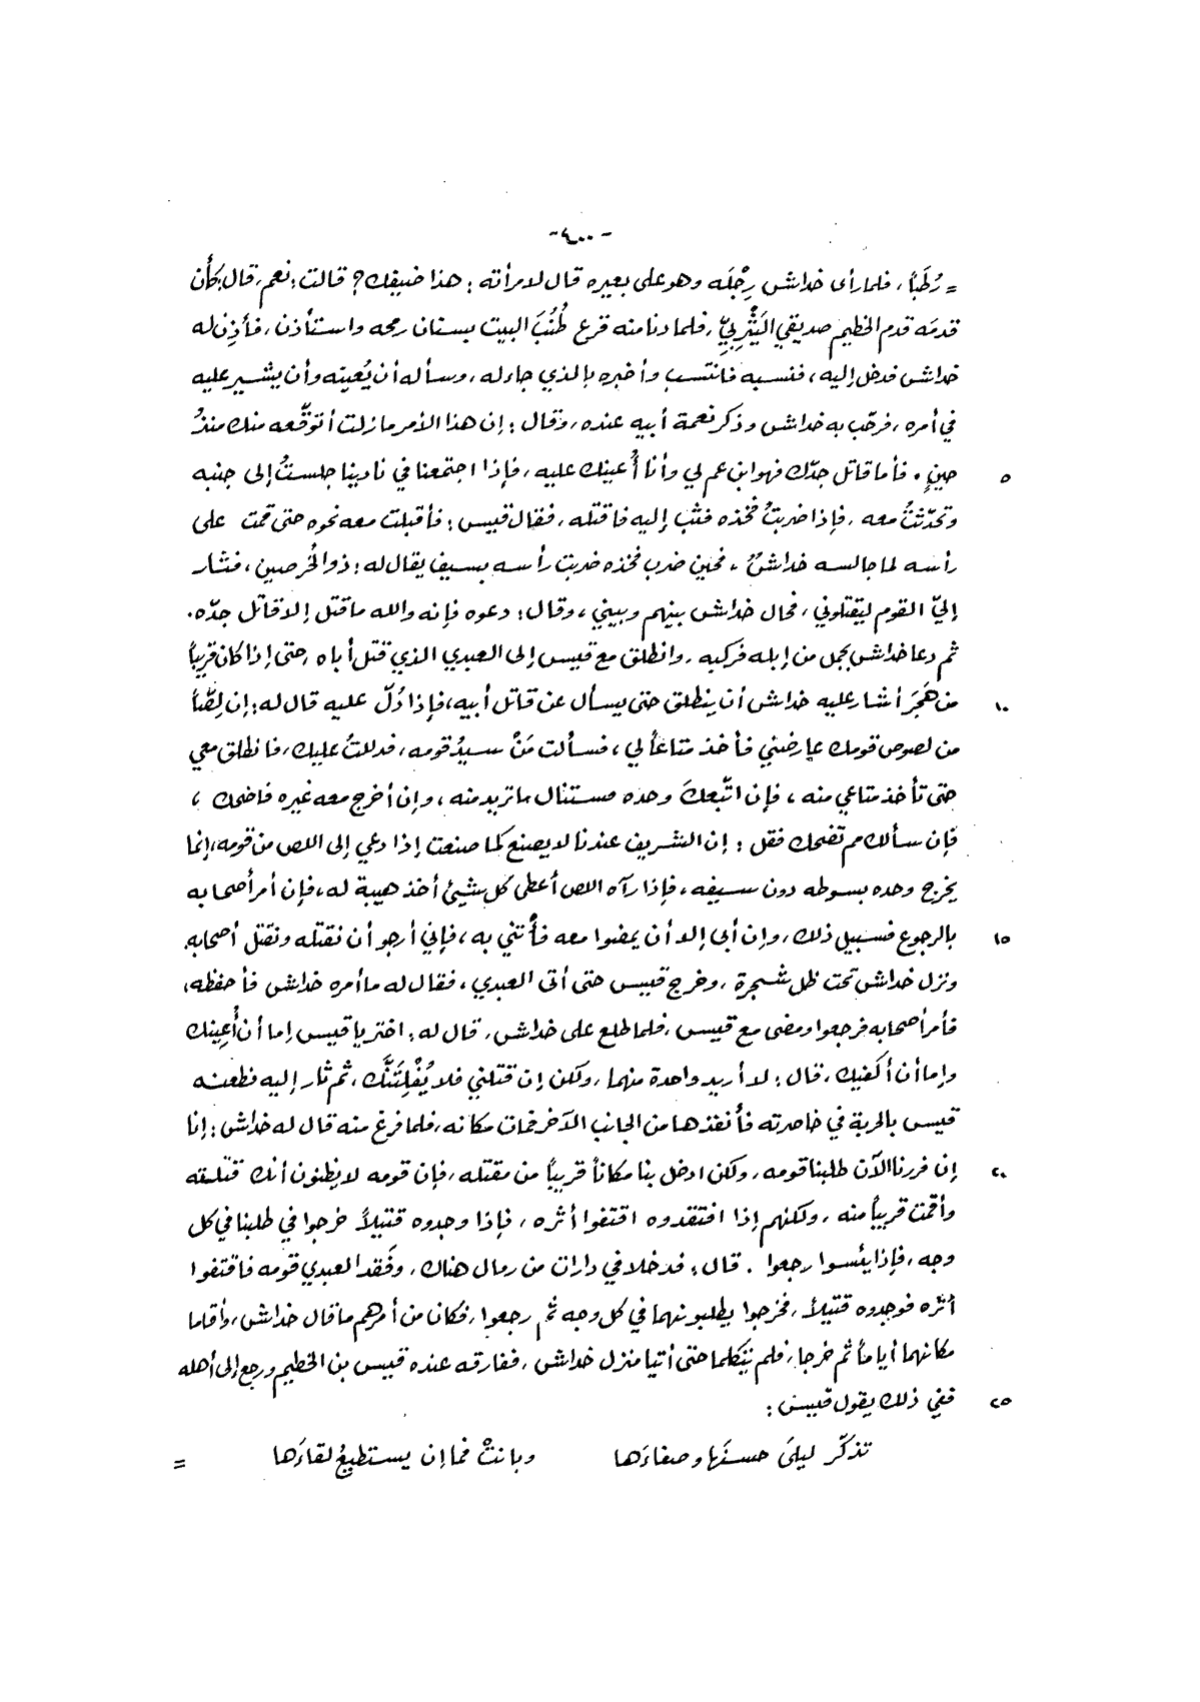 -٤٠٠-
= رُطَباً، فلما رأى خداش رِجْلَه وهو على بعيره قال لامرأته: هذا ضيفك؟ قالت: نعم، قال: كأن
قدمَه قدم الخطيم صديقي اليَثْرِبيّ، فلما دنا منه قرع طُنُبَ البيت بسنان رمحه واستأذن، فأذِن له
خداش فدخل إليه، فنسبه فانتسب وأخبره بالذي جاء له، وسأله أن يُعينه وأن يشير عليه
في أمره، فرحّب به خداش وذكر نعمة أبيه عنده، وقال: إن هذا الأمر ما زلت أتوقّعه منك منذُ
٥ حينٍ. فأما قاتل جدّك فهو ابن عم لي وأنا أُعينك عليه، فإذا اجتمعنا في نادينا جلستُ إلى جنبه
وتحدّثتُ معه، فإذا ضربتُ فخذه فثب إليه فاقتله، فقال قيس: فأقبلت معه نحوه حتى قمت على
رأسه لما جالسه خداشٌ، فحين ضرب فخذه ضربت رأسه بسيف يقال له: ذو الخُرصين، فثار
إليّ القوم ليقتلوني، فحال خداش بينهم وبيني، وقال: دعوه فإنه والله ما قتل إلا قاتل جدّه.
ثم دعا خداش بجمل من إبله فركبه، وانطلق مع قيس إلى العبدي الذي قتل أباه، حتى إذا كان قريباً
١٠ من هَجَرَ أشار عليه خداش أن ينطلق حتى يسأل عن قاتل أبيه، فإذا دُلّ عليه قال له: إن لصّاً
من لصوص قومك عارضني فأخذ متاعاً لي، فسألت مَنْ سيدُ قومه، فدللتُ عليك، فانطلق معي
حتى تأخذ متاعي منه، فإن اتّبعكَ وحده فستنال ما تريد منه، وإن أخرج معه غيره فاضحك،
فإن سألك مم تضحك فقل: إن الشريف عندنا لا يصنع كما صنعت إذا دعي إلى اللص من قومه، إنما
يخرج وحده بسوطه دون سيفه، فإذا رآه اللص أعطى كل شيئ أخذ هيبة له، فإن أمر أصحابه
١٥ بالرجوع فسبيل ذلك، وإن أبى إلا أن يمضوا معه فأتني به، فإني أرجو أن نقتله ونقتل أصحابه.
ونزل خداش تحت ظل شجرة، وخرج قيس حتى أتى العبدي، فقال له ما أمره خداش فأحفظه،
فأمر أصحابه فرجعوا ومضى مع قيس، فلما طلع على خداش، قال له: اختر يا قيس إما أن أُعِينك
وإما أن أكفيك، قال: لا أريد واحدة منهما، ولكن إن قتلني فلا يُفْلِتَنَّك، ثم ثار إليه فطعنه
قيس بالحربة في خاصرته فأنفذها من الجانب الآخر فمات مكانه، فلما فرغ منه قال له خداش: إنا
٢٠ إن فررنا الآن طلبنا قومه، ولكن ادخل بنا مكاناً قريباً من مقتله، فإن قومه لا يظنون أنك قتلته
وأقمت قريباً منه، ولكنهم إذا افتقدوه اقتفوا أثره، فإذا وجدوه قتيلاً خرجوا في طلبنا في كل
وجه، فإذا يئسوا رجعوا. قال: فدخلا في دارات من رمال هناك، وفَقَد العبدي قومه فاقتفوا
أثره فوجدوه قتيلاً، فخرجوا يطلبونهما في كل وجه ثم رجعوا، فكان من أمرهم ما قال خداش، وأقاما
مكانهما أياماً ثم خرجا، فلم يتكلما حتى أتيا منزل خداش، ففارقه عنده قيس بن الخطيم ورجع إلى أهله
٢٥ ففي ذلك يقول قيس:
تذكّر ليلى حسنَها وصفاءَها وبانتْ فما إن يستطيعُ لقاءَها =